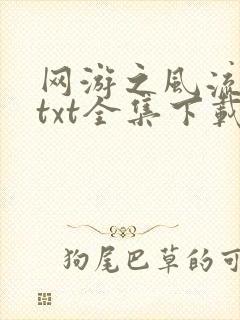 网游之风流
txt全集下载
狗尾巴草的可